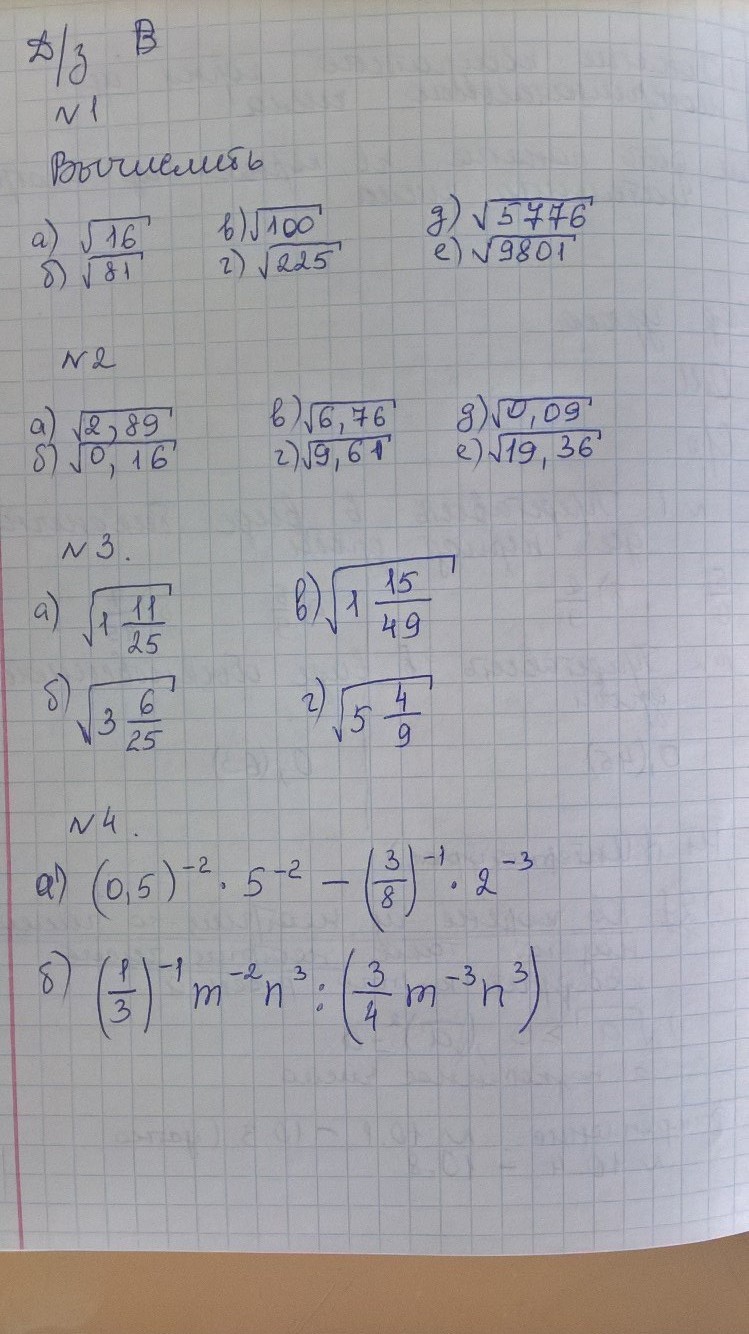 Д/з В
№1
Вычислить
а) √16 в) √100 д) √5776
б) √81 г) √225 е) √9801
№2
а) √2,89 в) √6,76 д) √0,09
б) √0,16 г) √9,61 е) √19,36
№3.
а) √1 11/25 в) √1 15/49
б) √3 6/25 г) √5 4/9
№4.
а) (0,5)⁻² · 5⁻² − (3/8)⁻¹ · 2⁻³
б) (1/3)⁻¹ m⁻² n³ : (3/4 m⁻³ n³)